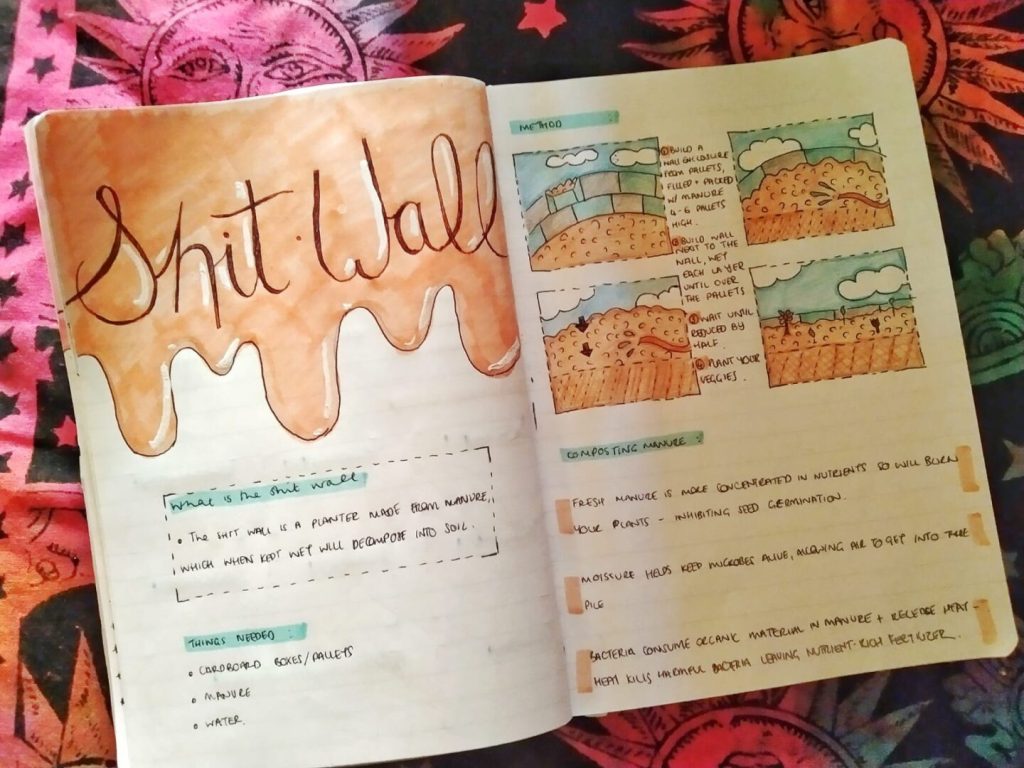 Shit Wall
What is the shit wall
• The SHIT WALL IS A PLANTER MADE FROM MANURE,
WHICH WHEN KEPT WET WILL DECOMPOSE INTO SOIL.
THINGS NEEDED :
• CARDBOARD BOXES/PALLETS
• MANURE
• WATER.
METHOD :
① BUILD A
WALL ENCLOSURE
FROM PALLETS,
FILLED + PACKED
W/ MANURE
4-6 PALLETS
HIGH.
② BUILD WALL
NEXT TO THE
WALL, WET
EACH LAYER
UNTIL OVER
THE PALLETS
③ WAIT UNTIL
REDUCED BY
HALF.
④ PLANT YOUR
VEGGIES.
COMPOSTING MANURE :
FRESH MANURE IS MORE CONCENTRATED IN NUTRIENTS SO WILL BURN
YOUR PLANTS - INHIBITING SEED GERMINATION.
MOISTURE HELPS KEEP MICROBES ALIVE, ALLOWING AIR TO GET INTO THE
PILE
BACTERIA CONSUME ORGANIC MATERIAL IN MANURE + RELEASE HEAT -
HEAT KILLS HARMFUL BACTERIA LEAVING NUTRIENT-RICH FERTILIZER.